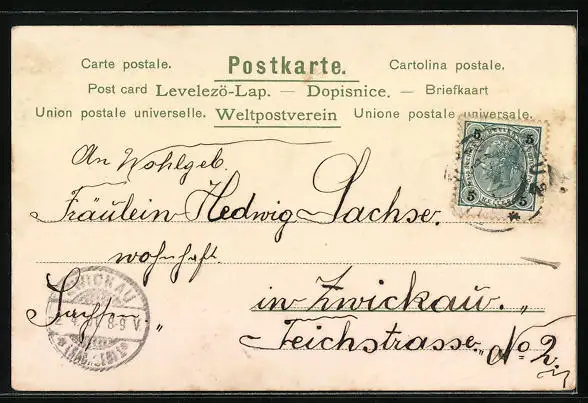 Carte postale. Postkarte. Cartolina postale.
Post card Levelezö-Lap. — Dopisnice. — Briefkaart
Union postale universelle. Weltpostverein Unione postale universale.
5 5
5 5
An Wohlgeb.
Fräulein Hedwig Sachse.
wohnhaft.
in Zwickau.
Sachsen
Teichstrasse No 2.
ZWICKAU
8-9 V